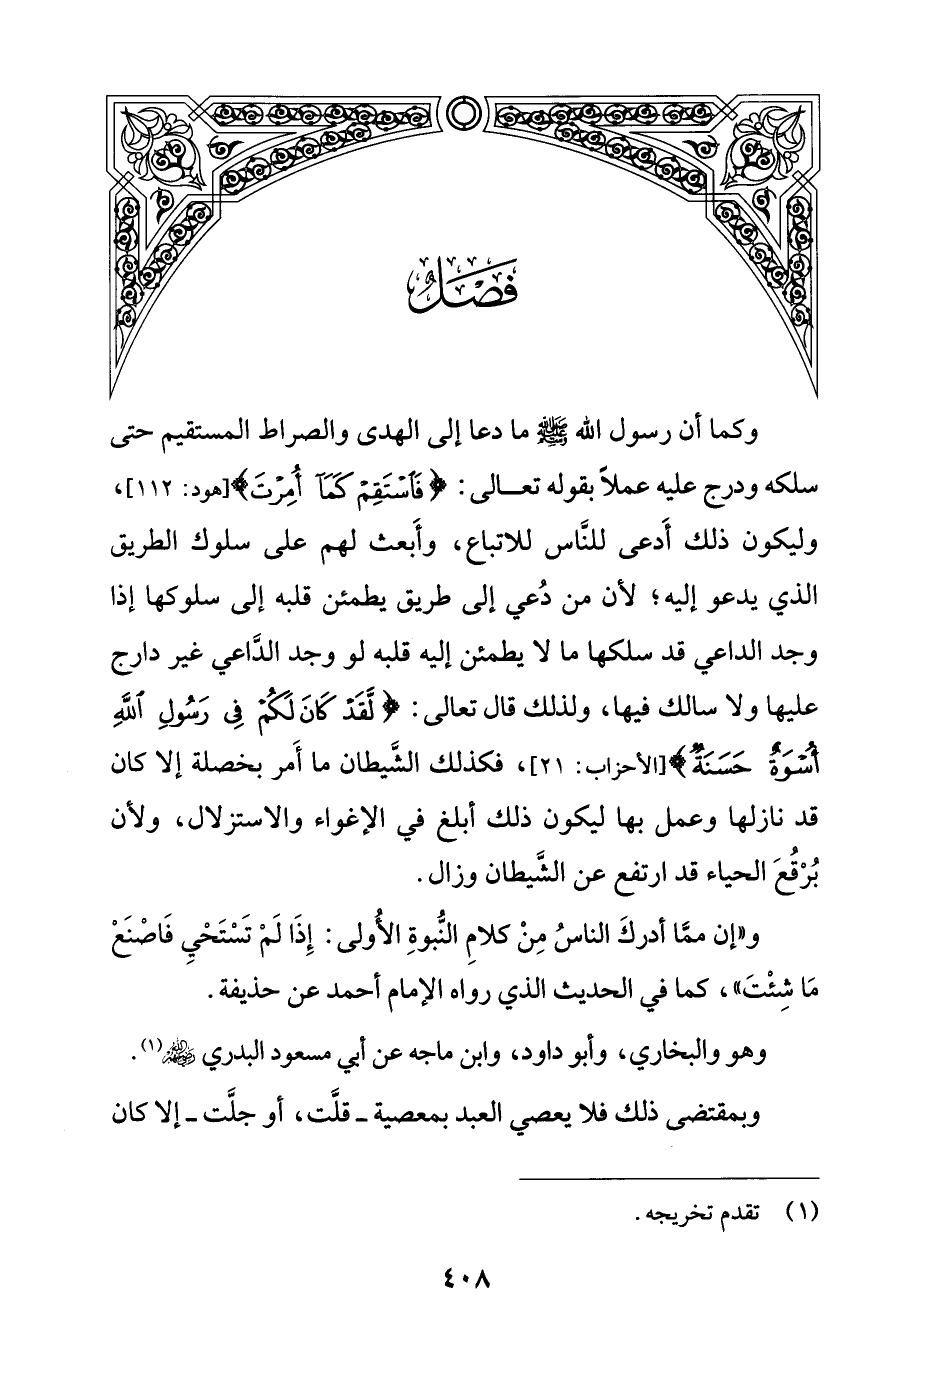 فَصْلٌ
وكما أن رسول الله ﷺ ما دعا إلى الهدى والصراط المستقيم حتى
سلكه ودرج عليه عملاً بقوله تعـــالى: ﴿فَاسْتَقِمْ كَمَآ أُمِرْتَ﴾[هود: ١١٢]،
وليكون ذلك أَدعى للنَّاس للاتباع، وأَبعث لهم على سلوك الطريق
الذي يدعو إليه؛ لأن من دُعي إلى طريق يطمئن قلبه إلى سلوكها إذا
وجد الداعي قد سلكها ما لا يطمئن إليه قلبه لو وجد الدَّاعي غير دارج
عليها ولا سالك فيها، ولذلك قال تعالى: ﴿لَّقَدْ كَانَ لَكُمْ فِى رَسُولِ ٱللَّهِ
أُسْوَةٌ حَسَنَةٌ﴾[الأحزاب: ٢١]، فكذلك الشَّيطان ما أَمر بخصلة إلا كان
قد نازلها وعمل بها ليكون ذلك أبلغ في الإغواء والاستزلال، ولأن
بُرْقُعَ الحياء قد ارتفع عن الشَّيطان وزال.
و«إن ممَّا أدركَ الناسُ مِنْ كلامِ النُّبوةِ الأُولى: إِذَا لَمْ تَسْتَحْيِ فَاصْنَعْ
مَا شِئْتَ»، كما في الحديث الذي رواه الإمام أحمد عن حذيفة.
وهو والبخاري، وأبو داود، وابن ماجه عن أبي مسعود البدري رضي الله عنه (١).
وبمقتضى ذلك فلا يعصي العبد بمعصية ـ قلَّت، أو جلَّت ـ إلا كان
(١) تقدم تخريجه.
٤٠٨